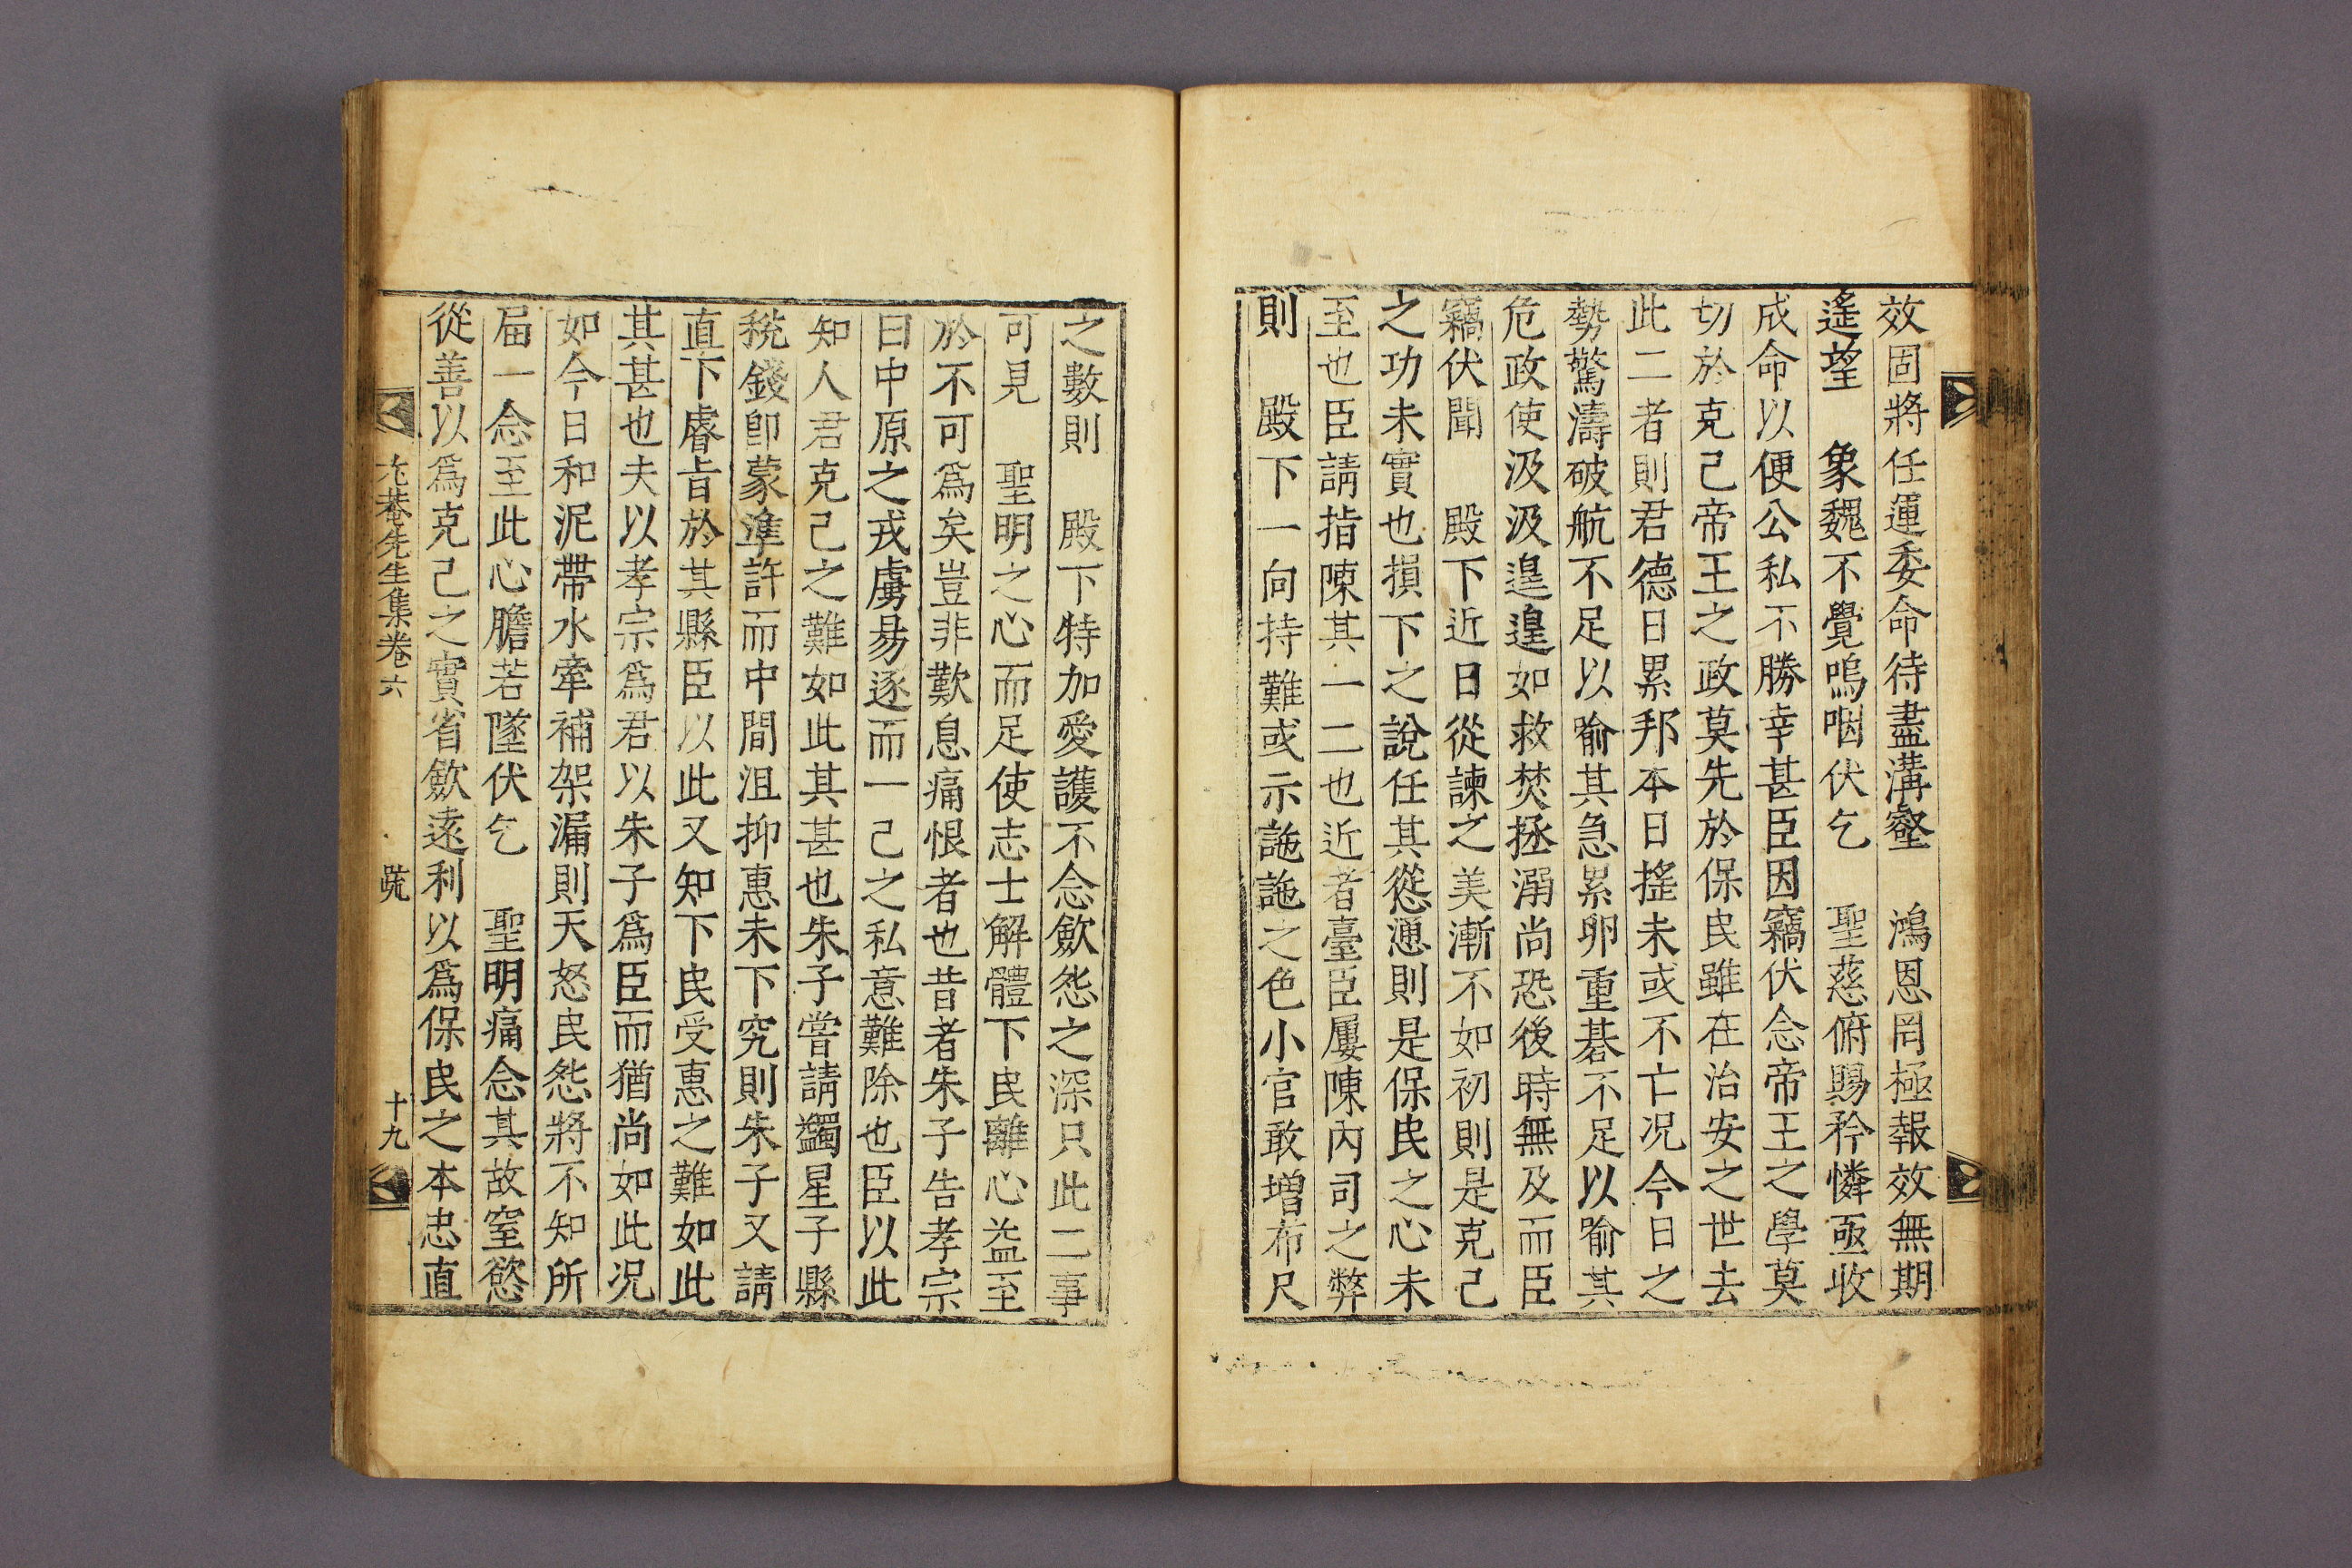 效固將任運委命待盡溝壑 鴻恩罔極報效無期
遙望 象魏不覺嗚咽伏乞 聖慈俯賜矜憐亟收
成命以便公私不勝幸甚臣因竊伏念帝王之學莫
切於克己帝王之政莫先於保民雖在治安之世去
此二者則君德日累邦本日搖未或不亡况今日之
勢驚濤破航不足以喻其急累卵重碁不足以喻其
危政使汲汲遑遑如救焚拯溺尚恐後時無及而臣
竊伏聞 殿下近日從諫之美漸不如初則是克己
之功未實也損下之說任其慫恿則是保民之心未
至也臣請指陳其一二也近者臺臣屢陳內司之弊
則 殿下一向持難或示訑訑之色小官敢增布尺
之數則 殿下特加愛護不念歛怨之深只此二事
可見 聖明之心而足使志士解體下民離心益至
於不可爲矣豈非歎息痛恨者也昔者朱子告孝宗
曰中原之戎虜易逐而一己之私意難除也臣以此
知人君克己之難如此其甚也朱子嘗請蠲星子縣
稅錢卽蒙準許而中間沮抑惠未下究則朱子又請
直下睿旨於其縣臣以此又知下民受惠之難如此
其甚也夫以孝宗爲君以朱子爲臣而猶尚如此况
如今日和泥帶水牽補架漏則天怒民怨將不知所
屆一念至此心膽若墜伏乞 聖明痛念其故窒慾
從善以爲克己之實省歛遠利以爲保民之本忠直
尤菴先生集卷六 疏 十九